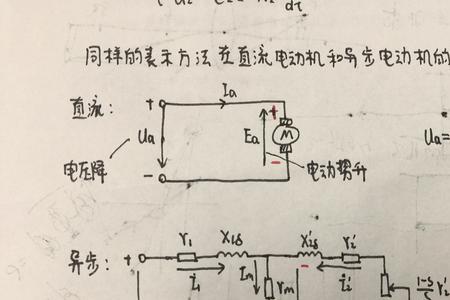 dt
同样的表示方法在直流电动机和异步电动机的
直流: + Ia +
Ua Ea M Ua=
电压降 - - 电动势升
异步: + r1 X1δ X'2δ r2'
- i1 Im rm i2' 1-s r2'
s